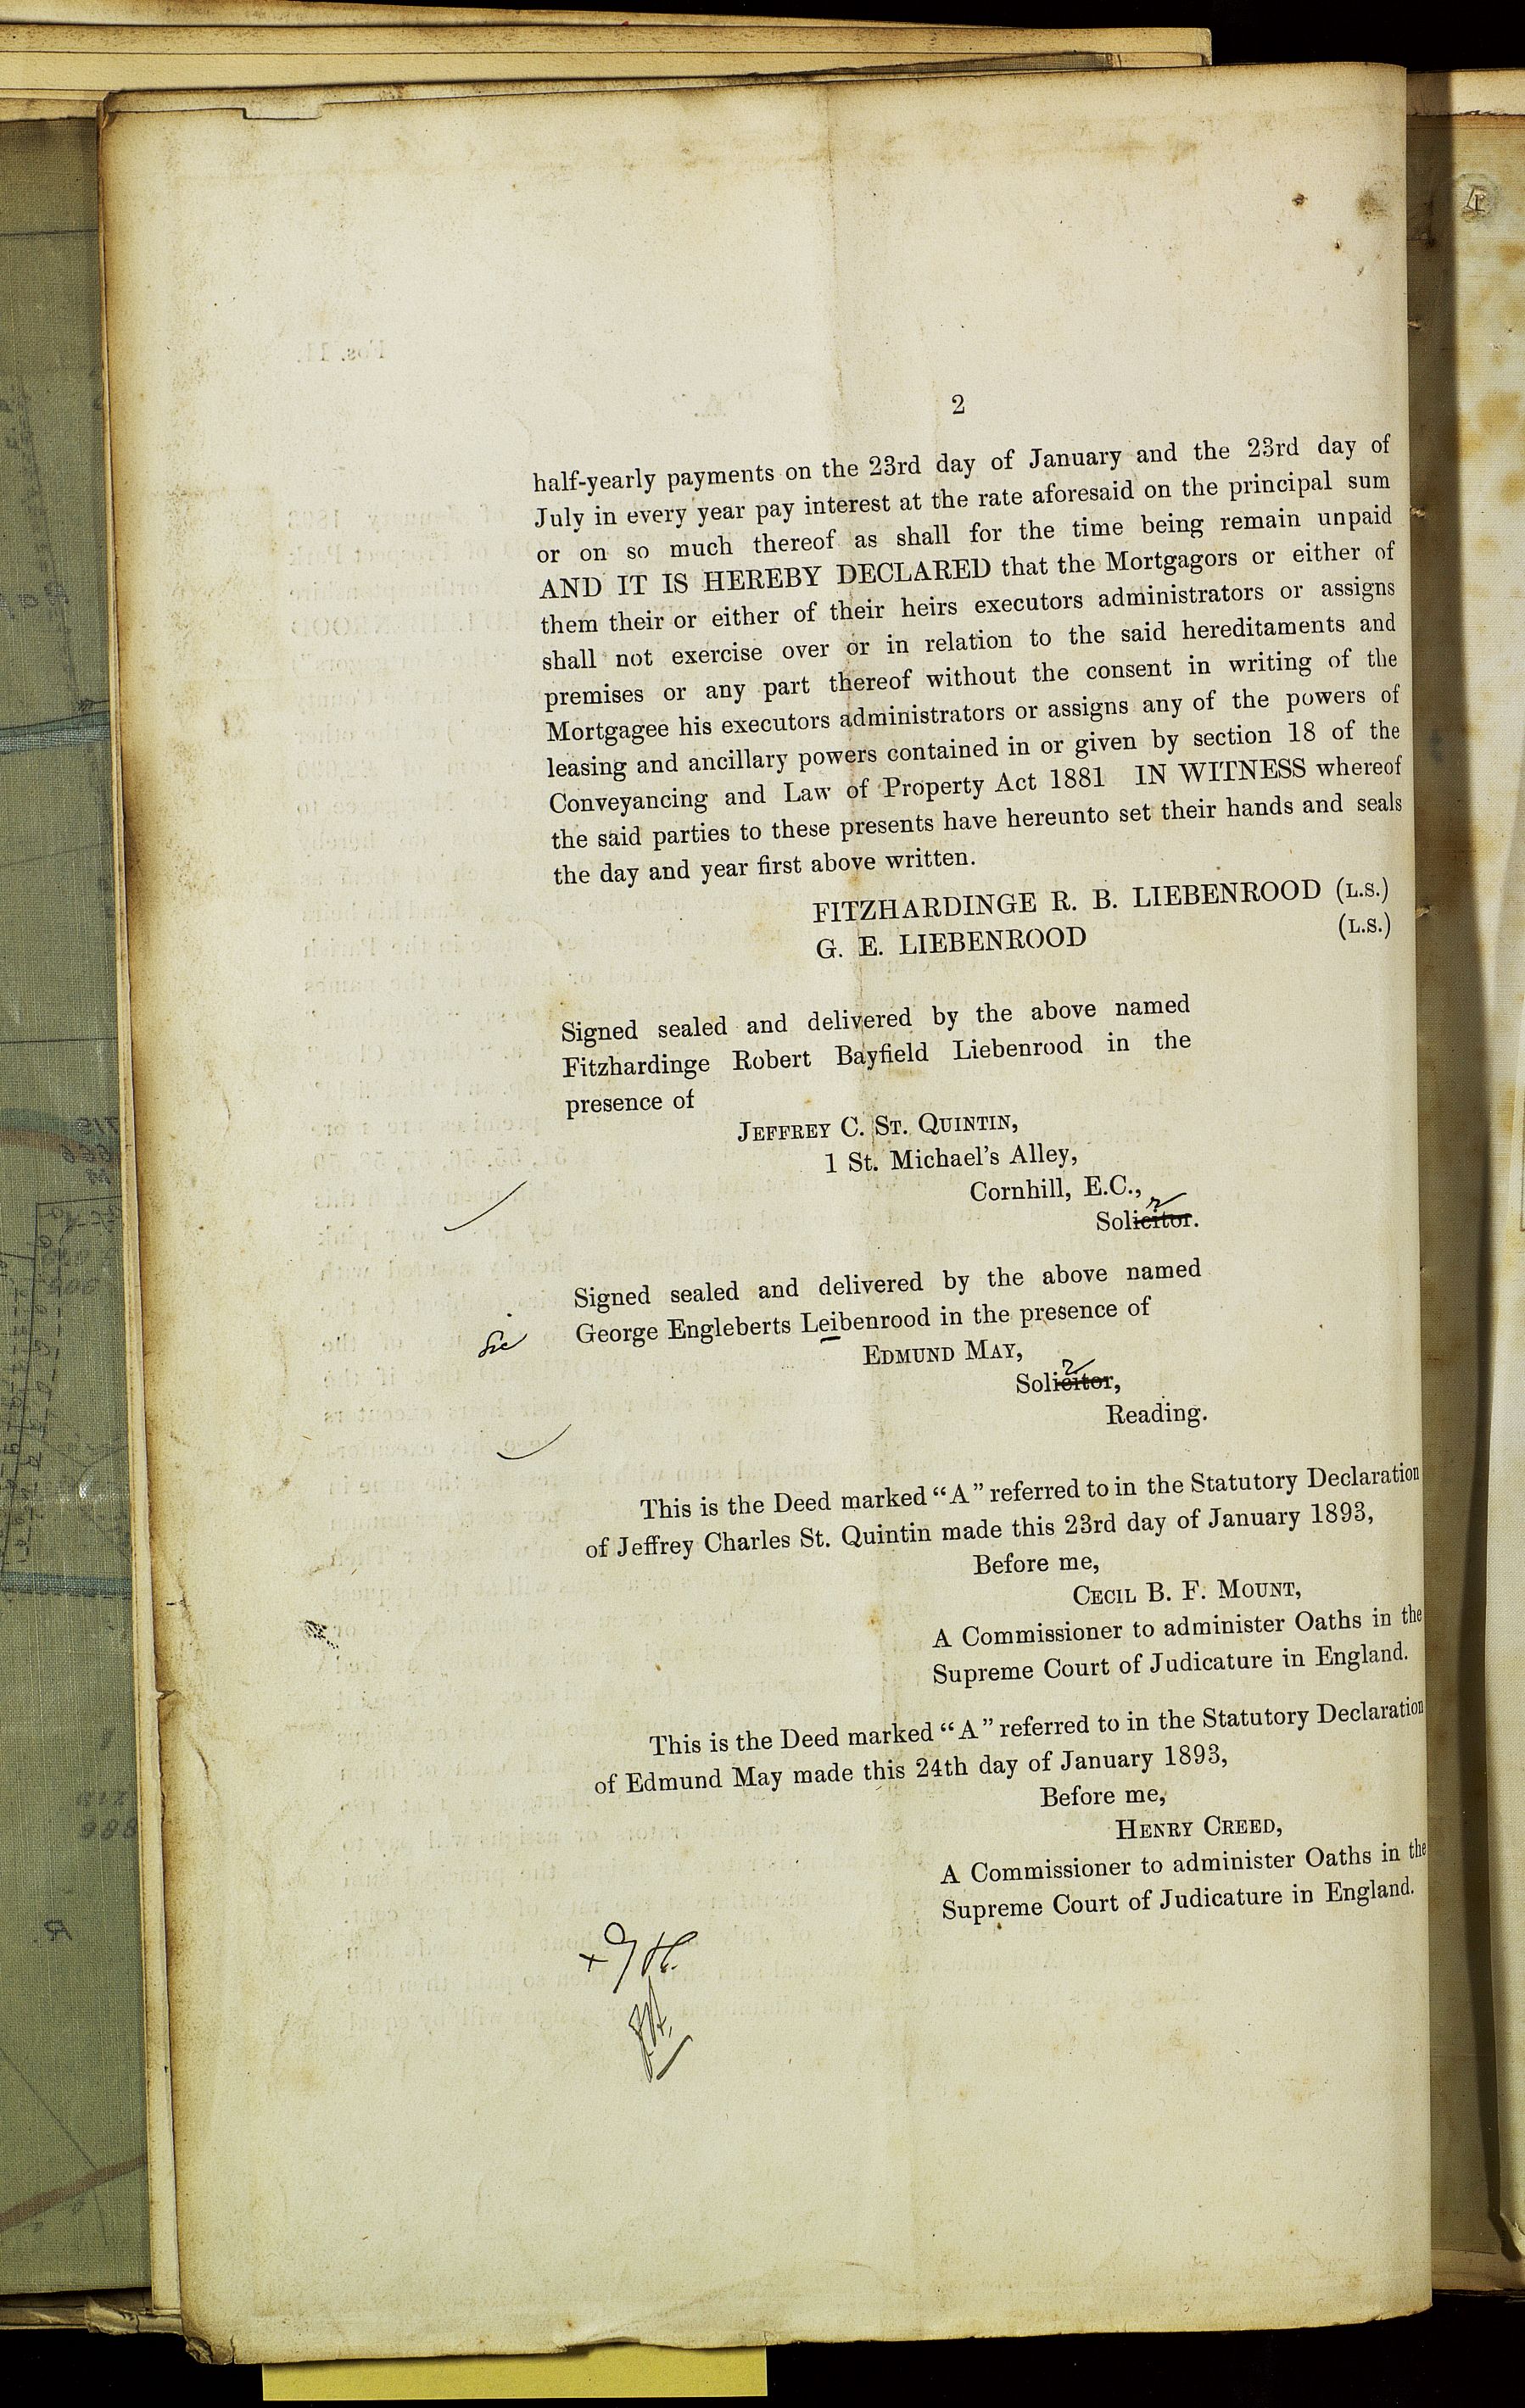 2
half-yearly payments on the 23rd day of January and the 23rd day of
July in every year pay interest at the rate aforesaid on the principal sum
or on so much thereof as shall for the time being remain unpaid
AND IT IS HEREBY DECLARED that the Mortgagors or either of
them their or either of their heirs executors administrators or assigns
shall not exercise over or in relation to the said hereditaments and
premises or any part thereof without the consent in writing of the
Mortgagee his executors administrators or assigns any of the powers of
leasing and ancillary powers contained in or given by section 18 of the
Conveyancing and Law of Property Act 1881 IN WITNESS whereof
the said parties to these presents have hereunto set their hands and seals
the day and year first above written.
FITZHARDINGE R. B. LIEBENROOD (L.S.)
G. E. LIEBENROOD (L.S.)
Signed sealed and delivered by the above named
Fitzhardinge Robert Bayfield Liebenrood in the
presence of
JEFFREY C. ST. QUINTIN,
1 St. Michael's Alley,
Cornhill, E.C.,
Solicitor.
Signed sealed and delivered by the above named
Sic George Engleberts Leibenrood in the presence of
EDMUND MAY,
Solicitor,
Reading.
This is the Deed marked “A” referred to in the Statutory Declaration
of Jeffrey Charles St. Quintin made this 23rd day of January 1893,
Before me,
CECIL B. F. MOUNT,
A Commissioner to administer Oaths in the
Supreme Court of Judicature in England.
This is the Deed marked “A” referred to in the Statutory Declaration
of Edmund May made this 24th day of January 1893,
Before me,
HENRY CREED,
A Commissioner to administer Oaths in the
Supreme Court of Judicature in England.